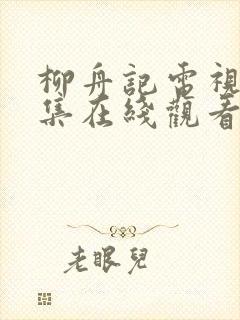 柳舟記電視
集在綫觀看
老眼兒